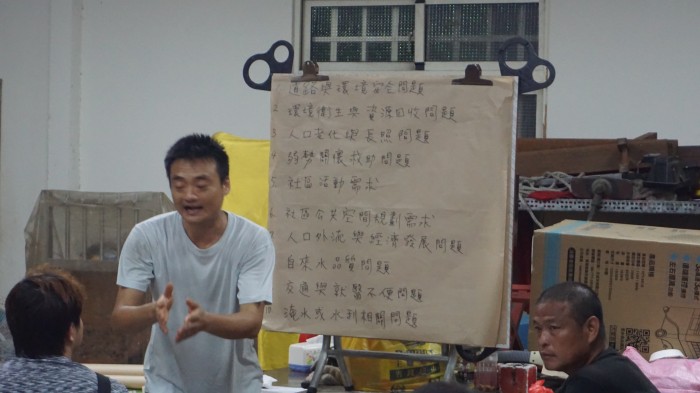 道路與環境安全問題
2 環境衛生與資源回收問題
3 人口老化與長照問題
4 弱勢關懷救助問題
5 社區活動需求
6 社區公共空間規劃需求
7 人口外流與經濟發展問題
自來水品質問題
交通與就醫不便問題
10 淹水或水利相關問題